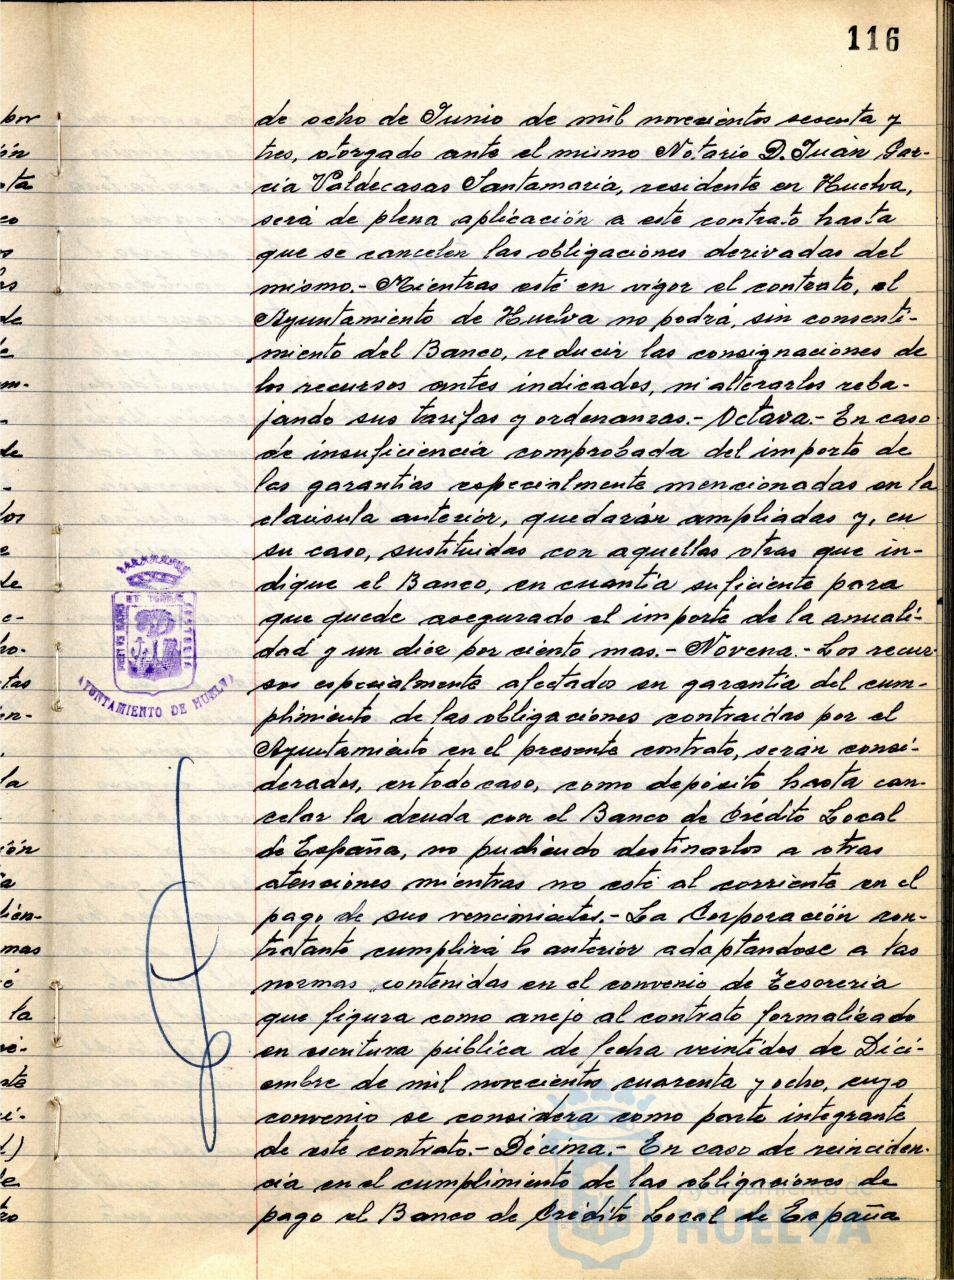 116
de ocho de Junio de mil novecientos sesenta y
tres, otorgado ante el mismo Notario D. Juan Gar-
cía Valdecasas Santamaría, residente en Huelva,
será de plena aplicación a este contrato hasta
que se cancelen las obligaciones derivadas del
mismo.- Mientras esté en vigor el contrato, el
Ayuntamiento de Huelva no podrá, sin consenti-
miento del Banco, reducir las consignaciones de
los recursos antes indicados, ni alterarlos reba-
jando sus tarifas y ordenanzas.- Octava.- En caso
de insuficiencia comprobada del importe de
las garantías especialmente mencionadas en la
claúsula anterior, quedarán ampliadas y, en
su caso, sustituidas con aquellas otras que in-
dique el Banco, en cuantía suficiente para
que quede asegurado el importe de la anuali-
dad y un diez por ciento mas.- Novena.- Los recur-
sos especialmente afectados en garantía del cum-
plimiento de las obligaciones contraidas por el
Ayuntamiento en el presente contrato, serán consi-
derados, en todo caso, como depósito hasta can-
celar la deuda con el Banco de Crédito Local
de España, no pudiendo destinarlos a otras
atenciones mientras no esté al corriente en el
pago de sus vencimientos.- La Corporación con-
tratante cumplirá lo anterior adaptandose a las
normas contenidas en el convenio de Tesorería
que figura como anejo al contrato formalizado
en escritura pública de fecha veintidos de Dici-
embre de mil novecientos cuarenta y ocho, cuyo
convenio se considera como parte integrante
de este contrato.- Décima.- En caso de reinciden-
cia en el cumplimiento de las obligaciones de
pago el Banco de Crédito Local de España
AYUNTAMIENTO DE HUELVA
Ayuntamiento de
HUELVA